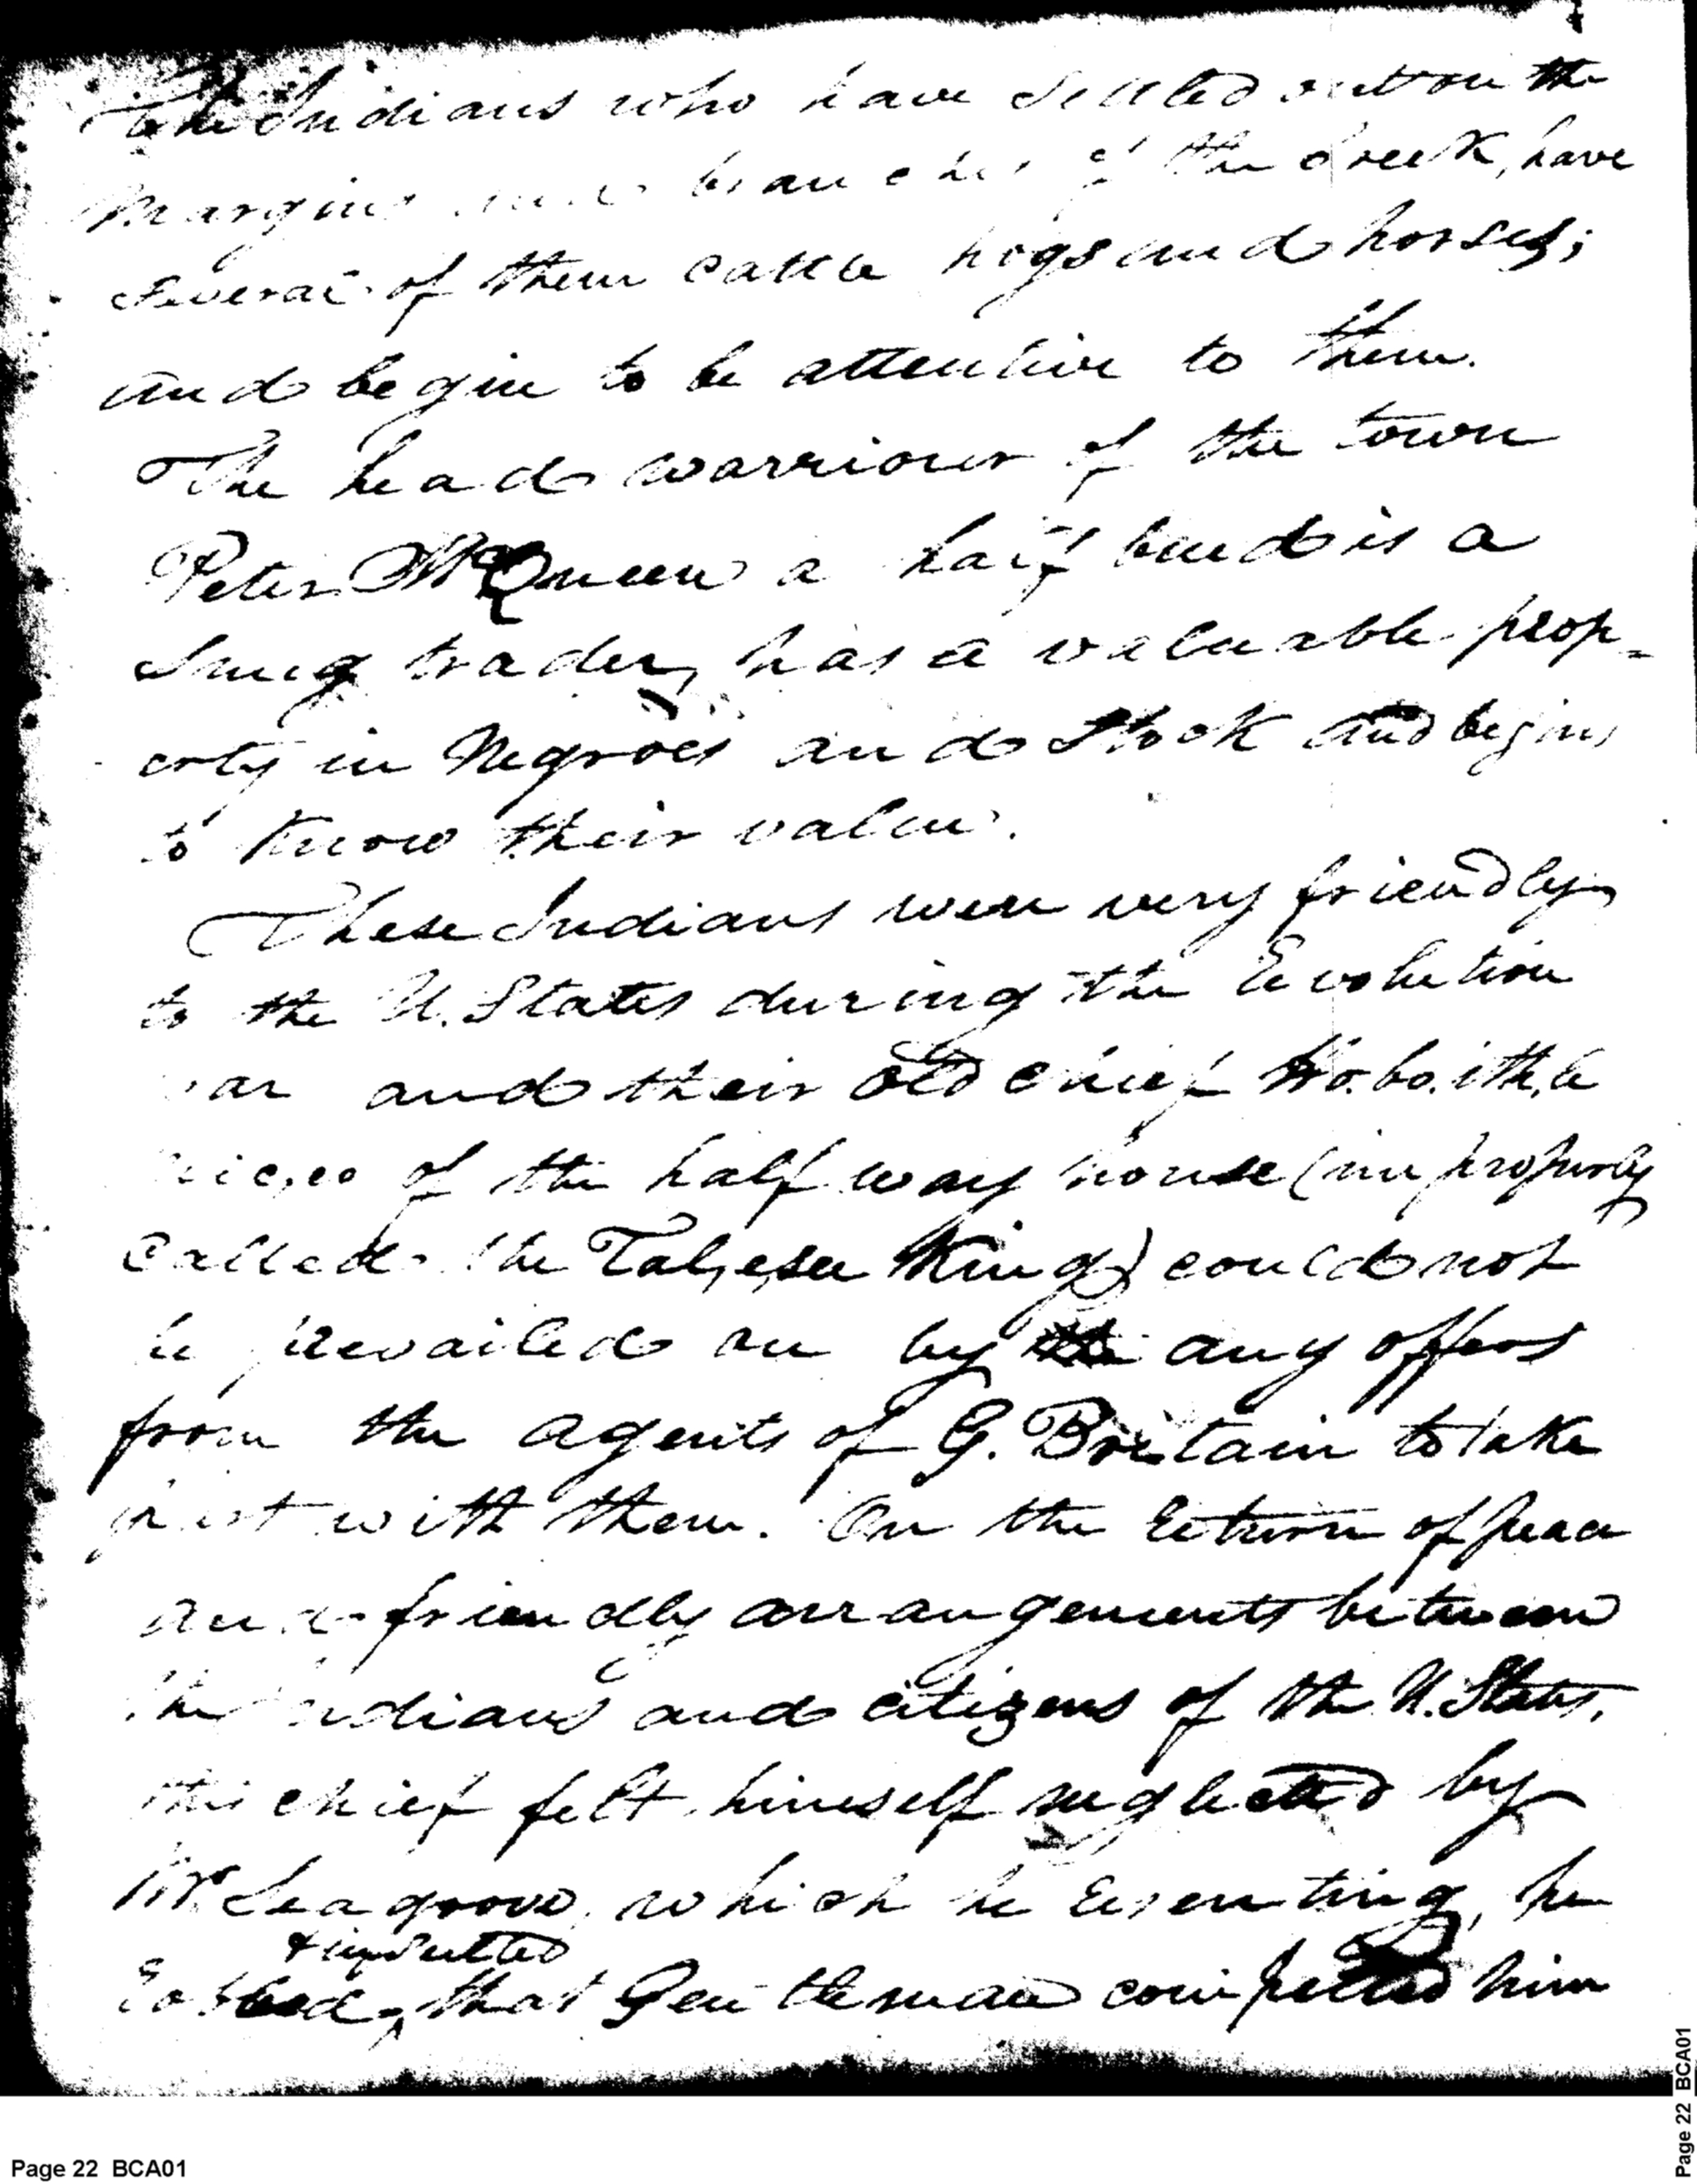 The Indians who have settled out on the
margins and branches of the creek, have
several of them cattle hogs and horses;
and begin to be attentive to them.
The head warriour of the town
Peter McQueen a half breed is a
snug trader, has a valuable prop-
erty in Negroes and stock and begins
to know their value.
These Indians were very friendly
to the U. States during the Revolution
war and their old chief Ho.bo.ith,le
mic,co of the half way house (improperly
called the Tal,e,see King) could not
be prevailed on by any offers
from the agents of G. Britain to take
part with them. On the return of peace
and friendly arrangements between
the Indians and citizens of the U. States,
this chief felt himself neglected by
Mr Seagrove, which he resenting, he
& insulted
robbed, that Gentleman compelled him
Page 22 BCA01
Page 22 BCA01